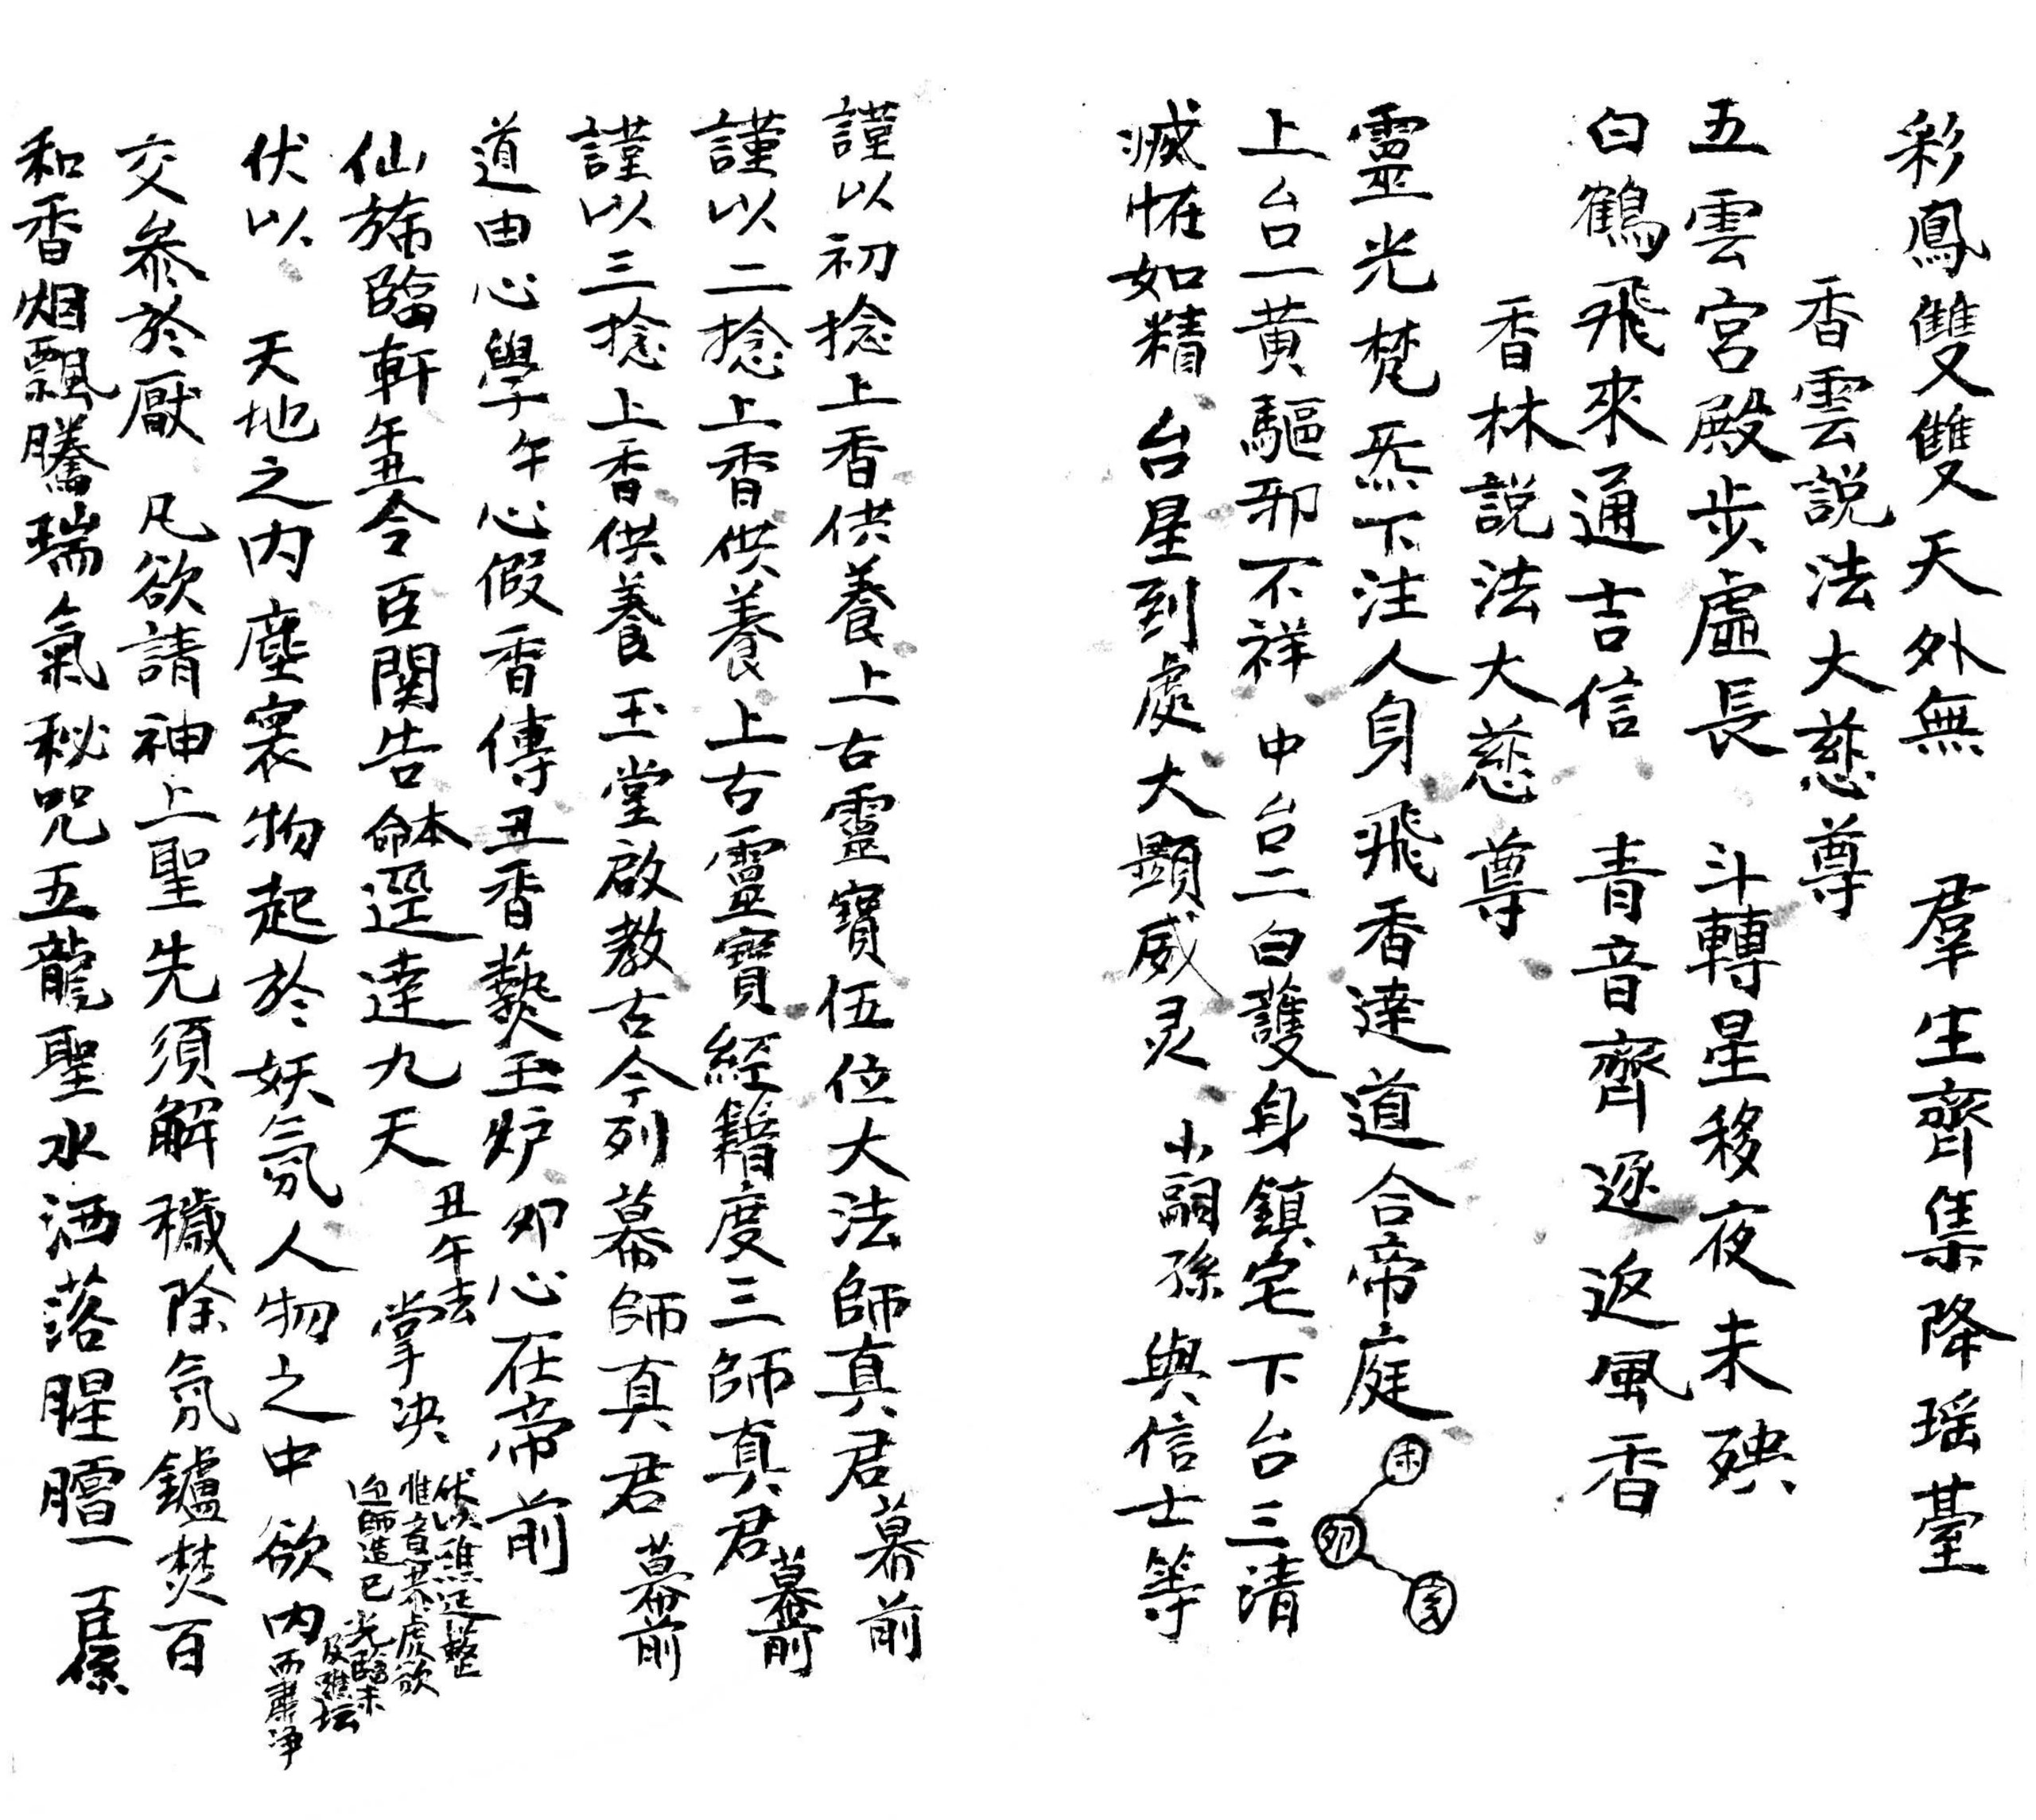 彩鳳雙雙天外無　羣生齊集降瑶臺
香雲説法大慈尊
五雲宮殿步虛長　斗轉星移夜未殃
白鶴飛來通吉信　青音齊逐返風香
香林説法大慈尊
靈光梵炁下注人身飛香達道合帝庭
上台一黄驅邪不祥　中台二白護身鎮宅下台三清
滅恠如精　台星到處大顕威灵　小嗣孫與信士等
謹以初捻上香供養上古靈寶伍位大法師真君幕前
謹以二捻上香供養上古靈寶經籍度三師真君幕前
謹以三捻上香供養玉堂啟教古今列幕師真君幕前
道由心學午心假香傳丑香爇玉炉卯心在帝前
仙旆臨軒午丑令臣関告本命逕達九天　丑午去　掌决
伏以　天地之内塵寰物起於妖氛人物之中欲内而肅净
交叅於厭　凡欲請神上聖先須解穢除氛鑪焚百
和香烟飄騰瑞氣秘咒五龍聖水洒落腥膻一臣係